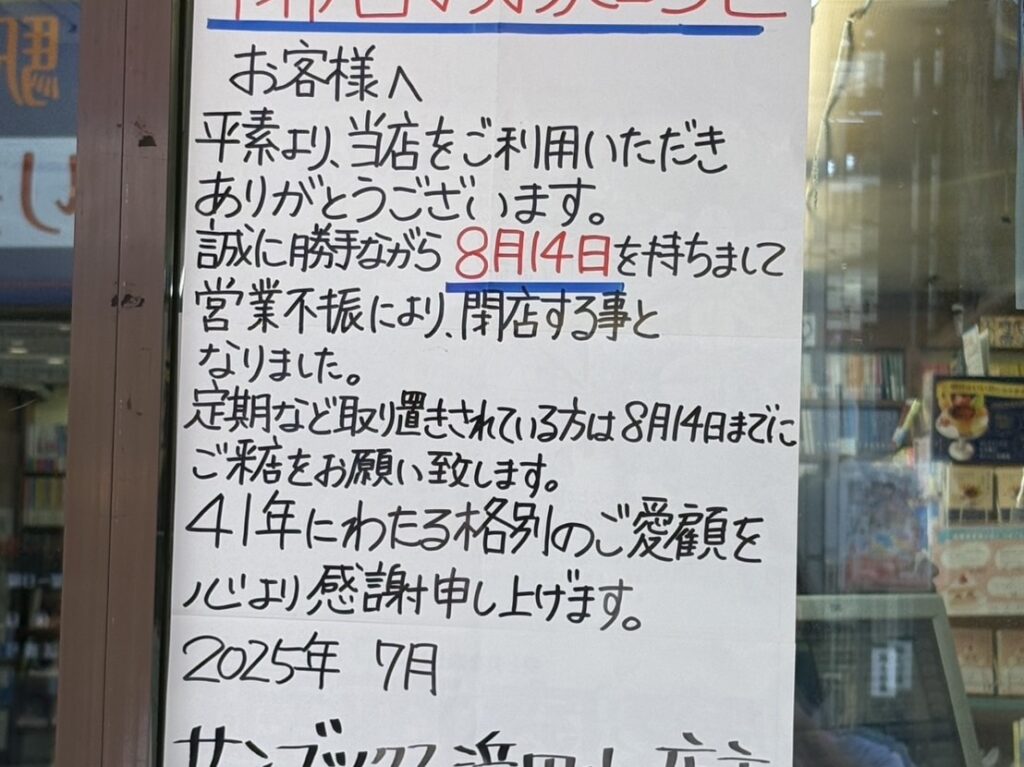 お客様へ
平素より、当店をご利用いただき
ありがとうございます。
誠に勝手ながら8月14日を持ちまして
営業不振により、閉店する事と
なりました。
定期など取り置きされている方は8月14日までに
ご来店をお願い致します。
41年にわたる格別のご愛顧を
心より感謝申し上げます。
2025年 7月
サンブックス浜田山